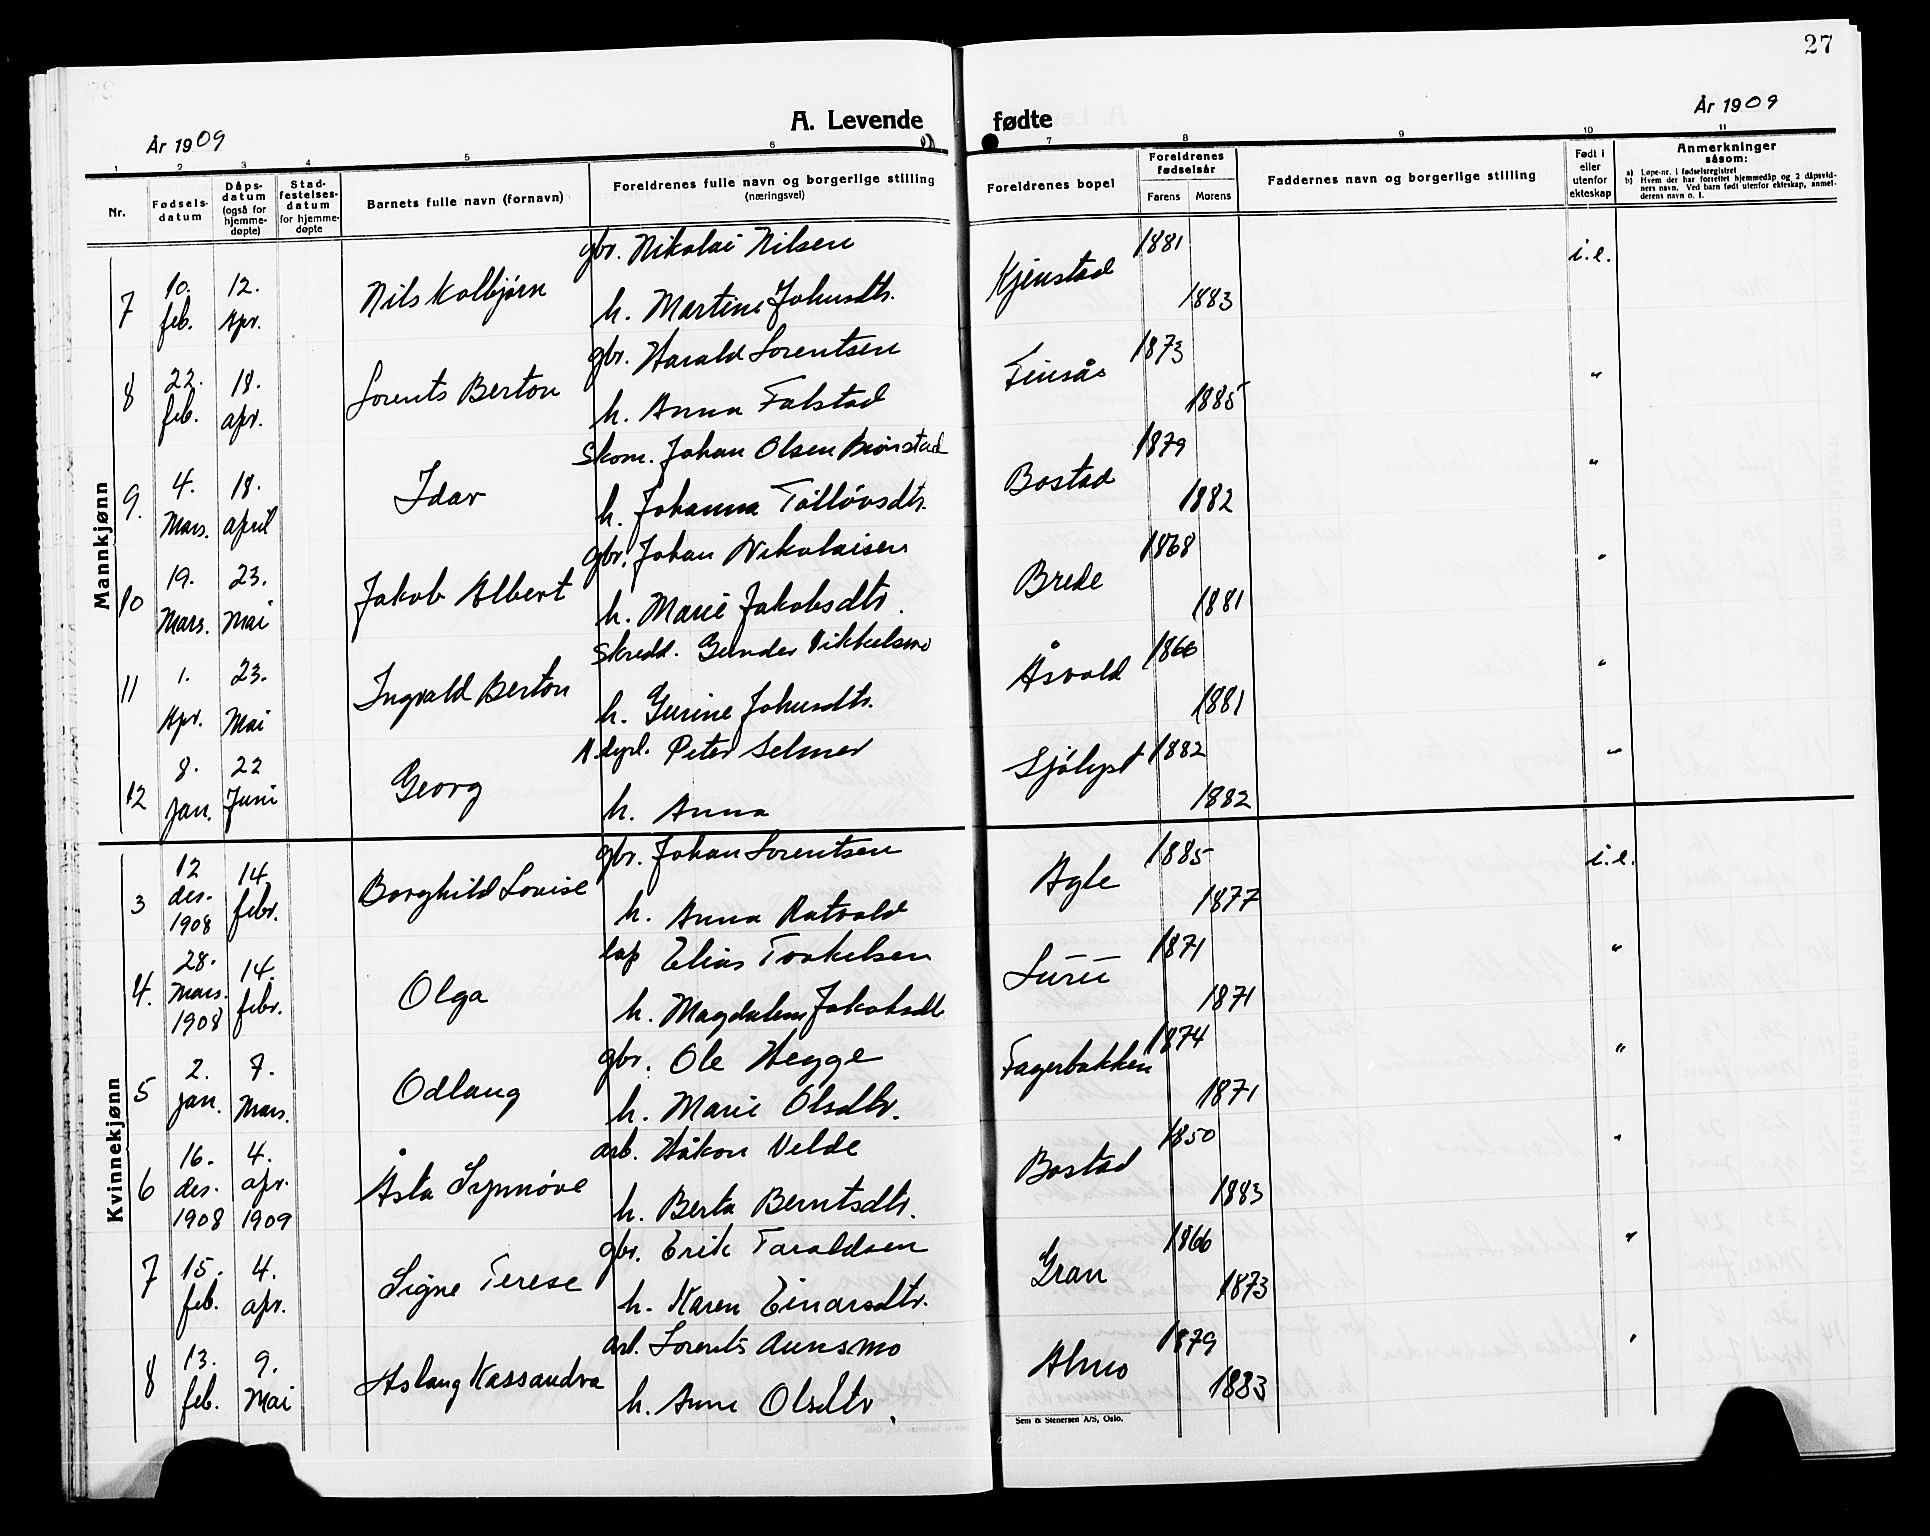 27
År 1909
A. Levende fødte
År 1909
1 2 3 4 5 6 7 8 9 10 11
Nr.
Fødsels-
datum
Dåps-
datum
(også for
hjemme-
døpte)
Stad-
festelses-
datum
for hjemme-
døpte
Barnets fulle navn (fornavn)
Foreldrenes fulle navn og borgerlige stilling
(næringsvei)
Foreldrenes bopel
Foreldrenes
fødselsår
Farens Morens
Faddernes navn og borgerlige stilling
Født i
eller
utenfor
ekteskap
Anmerkninger
såsom:
a) Løpe-nr. i fødselsregistret
b) Hvem der har forrettet hjemmedåp og 2 dåpsvid-
ners navn. Ved barn født utenfor ekteskap, anmel-
derens navn o. l.
Mannkjønn
7 10. feb. 12. Apr. Nils Kolbjørn gbr. Nikolai Nilsen Kjenstad 1881 i.e.
h. Martine Johnsdtr. 1883
8 22. feb. 18. apr. Lorents Berton gbr. Harald Lorentsen Finsås 1873 "
h. Anna Falstad 1885
9. 4. Mars. 18. april Idar Skom. Johan Olsen Bostad 1879 "
h. Johanna Tølløvsdtr. 1882
10 19. Mars. 23. Mai Jakob Albert gbr. Johan Nikolaisen Brede 1868 "
h. Marie Jakobsdtr. 1881
11 1. Apr. 23. Mai Ingvald Berton Skredd. Gunder Mikkelsen Åsvold 1866 "
h. Gurine Johnsdtr. 1881
12 8. jan. 22 Juni Georg Peter Selmer Sjölyst 1882 "
h. Anna 1882
Kvinnekjønn
3 12 des. 1908 14 febr. Borghild Lovise gbr. Johan Lorentsen Agle 1885 i.e.
h. Anna Ratvold 1877
4. 28. Mars. 1908 14. febr. Olga lap Elias Torkelsen Luru 1871 "
h. Magdalena Jakobsdtr. 1871
5 2. jan. 7. Mars. Odlaug gbr. Ole Hegge Fagerbakken 1874 "
h. Marie Olsdtr. 1871
6 16. des. 1908 4. apr. 1909 Åsta Synnøve arb. Håkon Velde Bostad 1850 "
h. Berta Berntsdtr. 1883
7 15. feb. 4. apr. Signe Terese gbr. Erik Taraldsen Gran 1866 "
h. Karen Einarsdtr. 1873
8 13. feb. 9. Mai Aslaug Kassandra arb. Lorents Aunsmo Almo 1879 "
h. Anne Olsdtr. 1883
Sem & Stenersen A/S, Oslo.